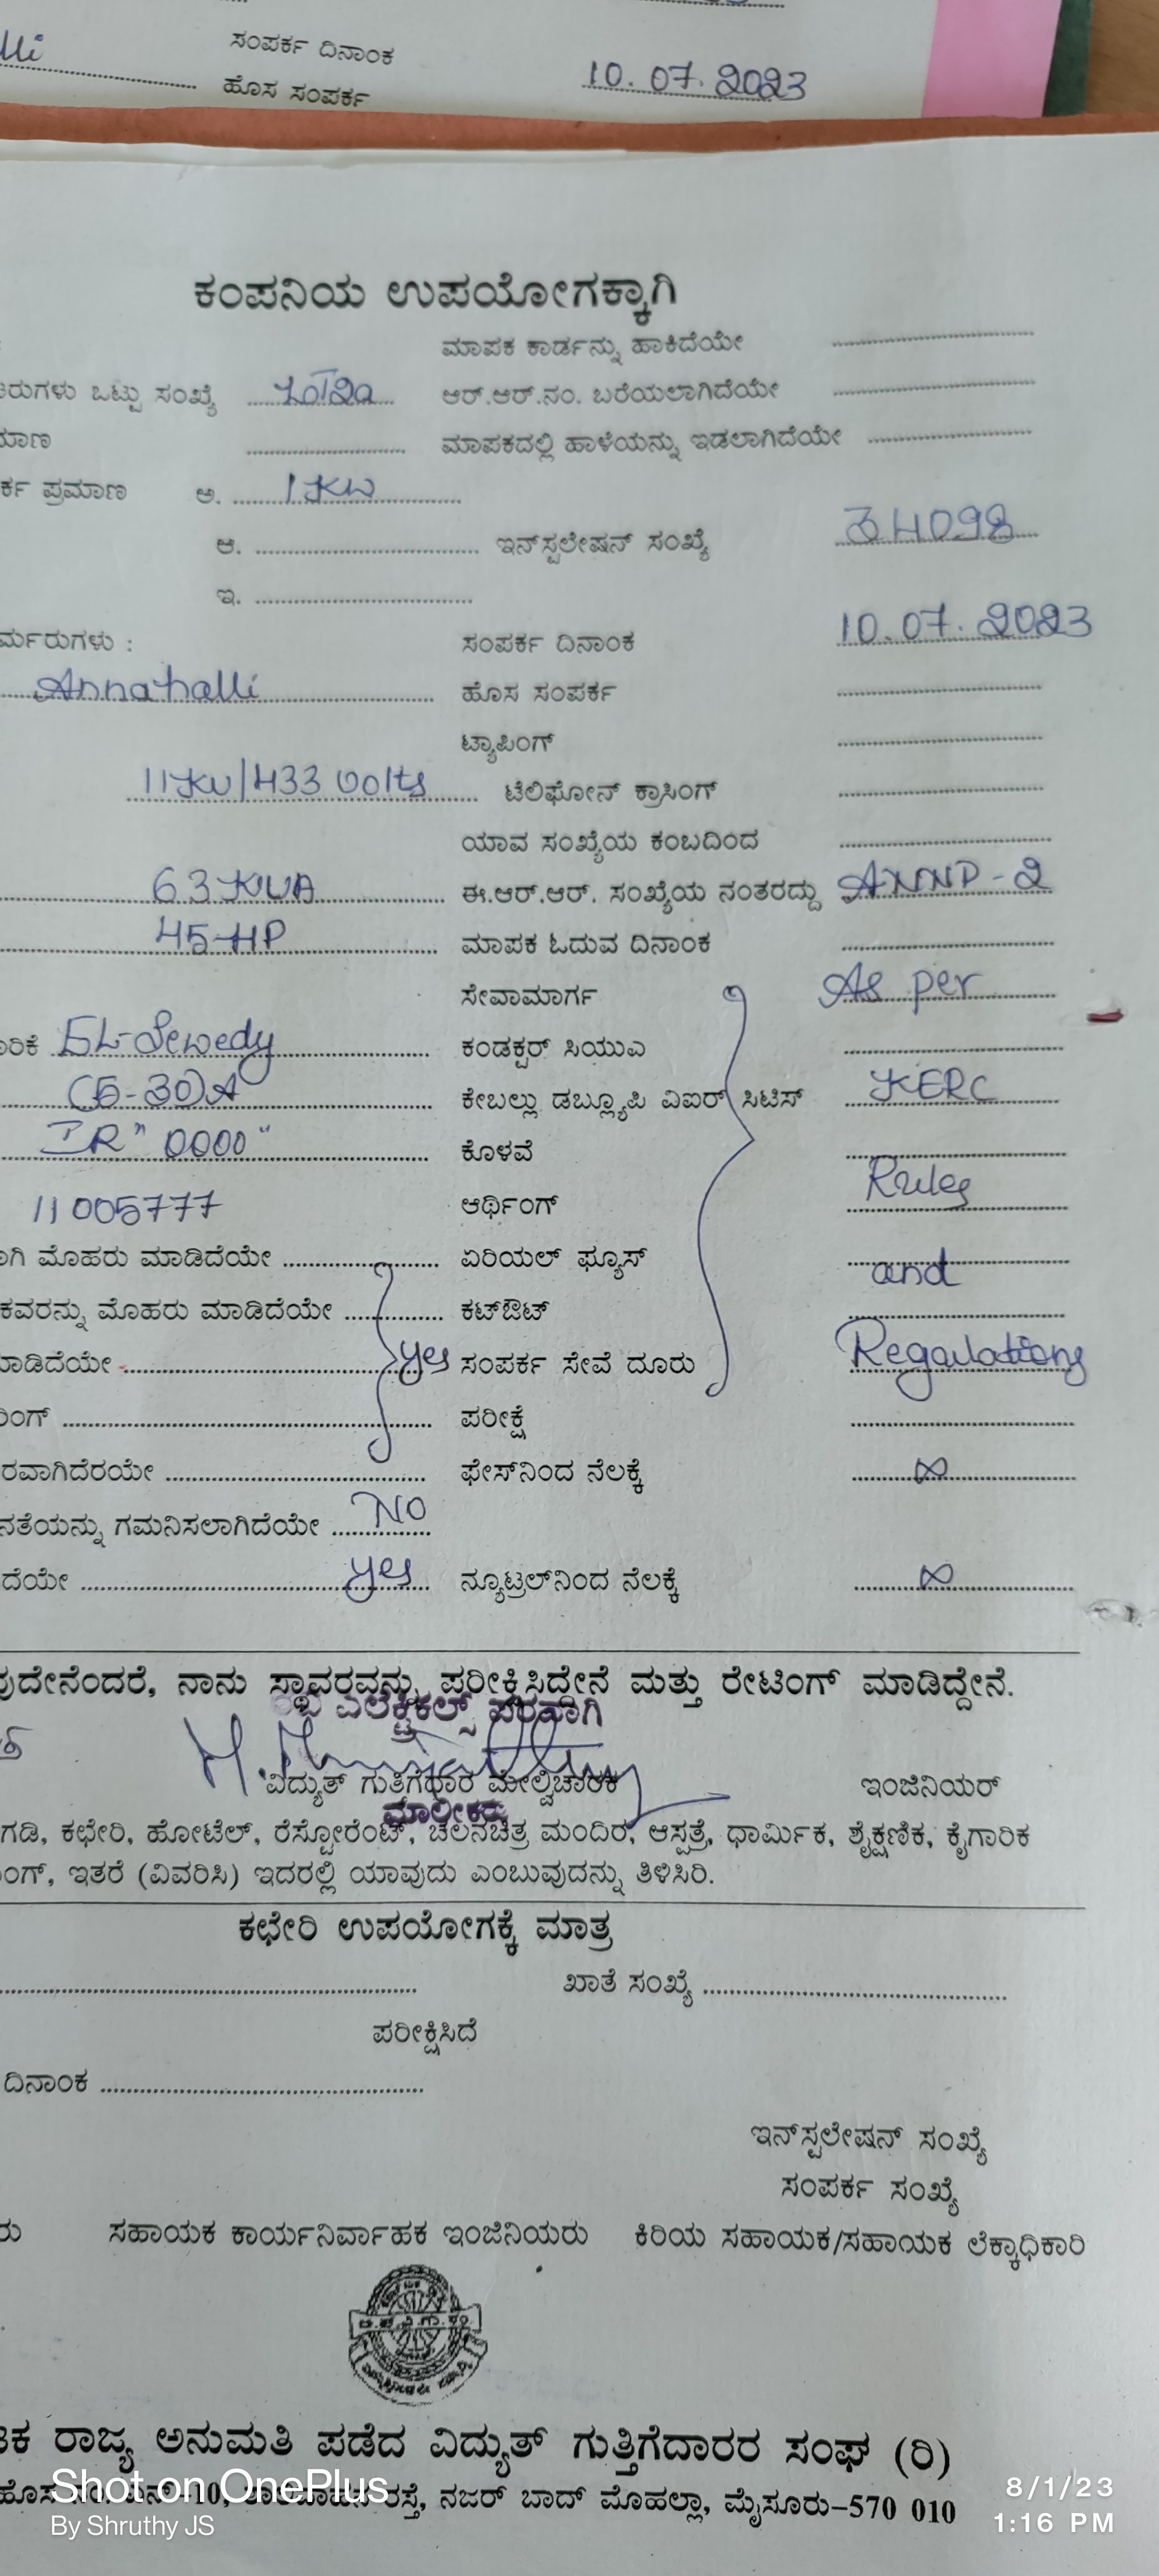 ಸಂಪರ್ಕ ದಿನಾಂಕ 10.07.2023
ಹೊಸ ಸಂಪರ್ಕ
ಕಂಪನಿಯ ಉಪಯೋಗಕ್ಕಾಗಿ
ಮಾಪಕ ಕಾರ್ಡನ್ನು ಹಾಕಿದೆಯೇ
ಒಟ್ಟು ಸಂಖ್ಯೆ ಆರ್.ಆರ್.ನಂ. ಬರೆಯಲಾಗಿದೆಯೇ
ಮಾಪಕದಲ್ಲಿ ಹಾಳೆಯನ್ನು ಇಡಲಾಗಿದೆಯೇ
ಪ್ರಮಾಣ ಅ. 1 KW
ಆ. ಇನ್‌ಸ್ಟಲೇಷನ್ ಸಂಖ್ಯೆ 34098
ಇ.
ಸಂಪರ್ಕ ದಿನಾಂಕ 10.07.2023
Annahalli ಹೊಸ ಸಂಪರ್ಕ
ಟ್ಯಾಪಿಂಗ್
11KV/433 Volts ಟೆಲಿಫೋನ್ ಕ್ರಾಸಿಂಗ್
ಯಾವ ಸಂಖ್ಯೆಯ ಕಂಬದಿಂದ
63 KVA ಈ.ಆರ್.ಆರ್. ಸಂಖ್ಯೆಯ ನಂತರದ್ದು ANNP-2
45 HP ಮಾಪಕ ಓದುವ ದಿನಾಂಕ
ಸೇವಾಮಾರ್ಗ As per
EL-Sewedy ಕಂಡಕ್ಟರ್ ಸಿಯುಎ
(5-30)A ಕೇಬಲ್ಲು ಡಬ್ಲ್ಯೂಪಿ ವಿಐರ್ ಸಿಟಿಸ್ KERC
IR "0000" ಕೊಳವೆ
11005777 ಆರ್ಥಿಂಗ್ Rules
ಮೊಹರು ಮಾಡಿದೆಯೇ ಏರಿಯಲ್ ಫ್ಯೂಸ್ and
ಕವರನ್ನು ಮೊಹರು ಮಾಡಿದೆಯೇ ಕಟ್‌ಔಟ್
ಮಾಡಿದೆಯೇ yes ಸಂಪರ್ಕ ಸೇವೆ ದೂರು Regulations
ಪರೀಕ್ಷೆ
ರವಾಗಿದೆರಯೇ ಫೇಸ್‌ನಿಂದ ನೆಲಕ್ಕೆ ∞
ನತೆಯನ್ನು ಗಮನಿಸಲಾಗಿದೆಯೇ NO
ದೆಯೇ yes ನ್ಯೂಟ್ರಲ್‌ನಿಂದ ನೆಲಕ್ಕೆ ∞
ವುದೇನೆಂದರೆ, ನಾನು ಸ್ಥಾವರವನ್ನು ಪರೀಕ್ಷಿಸಿದ್ದೇನೆ ಮತ್ತು ರೇಟಿಂಗ್ ಮಾಡಿದ್ದೇನೆ.
ಎಲೆಕ್ಟ್ರಿಕಲ್ಸ್ ಪರವಾಗಿ
ವಿದ್ಯುತ್ ಗುತ್ತಿಗೆದಾರ ಮೇಲ್ವಿಚಾರಕ ಇಂಜಿನಿಯರ್
ಮಾಲೀಕರು
ಗಡಿ, ಕಛೇರಿ, ಹೋಟೆಲ್, ರೆಸ್ಟೋರೆಂಟ್, ಚಲನಚಿತ್ರ ಮಂದಿರ, ಆಸ್ಪತ್ರೆ, ಧಾರ್ಮಿಕ, ಶೈಕ್ಷಣಿಕ, ಕೈಗಾರಿಕ
ಂಗ್, ಇತರೆ (ವಿವರಿಸಿ) ಇದರಲ್ಲಿ ಯಾವುದು ಎಂಬುವುದನ್ನು ತಿಳಿಸಿರಿ.
ಕಛೇರಿ ಉಪಯೋಗಕ್ಕೆ ಮಾತ್ರ
ಖಾತೆ ಸಂಖ್ಯೆ
ಪರೀಕ್ಷಿಸಿದೆ
ದಿನಾಂಕ
ಇನ್‌ಸ್ಟಲೇಷನ್ ಸಂಖ್ಯೆ
ಸಂಪರ್ಕ ಸಂಖ್ಯೆ
ಸಹಾಯಕ ಕಾರ್ಯನಿರ್ವಾಹಕ ಇಂಜಿನಿಯರು ಕಿರಿಯ ಸಹಾಯಕ/ಸಹಾಯಕ ಲೆಕ್ಕಾಧಿಕಾರಿ
ರಾಜ್ಯ ಅನುಮತಿ ಪಡೆದ ವಿದ್ಯುತ್ ಗುತ್ತಿಗೆದಾರರ ಸಂಘ (ರಿ)
ರಸ್ತೆ, ನಜರ್ ಬಾದ್ ಮೊಹಲ್ಲಾ, ಮೈಸೂರು-570 010
Shot on OnePlus
By Shruthy JS
8/1/23
1:16 PM